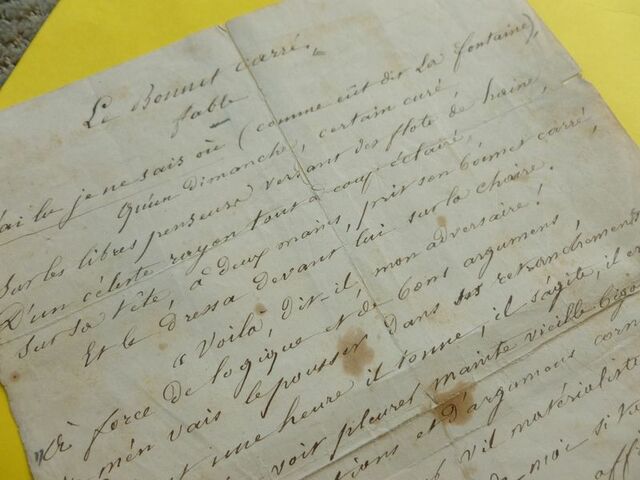 Le Bonnet carré.
fable
J'ai lu je ne sais où (comme eût dit La fontaine),
Qu'un dimanche, certain curé,
Sur les libres penseurs versant des flots de haine,
D'un céleste rayon tout à coup éclairé,
Sur sa tête, à deux mains, prit son bonnet carré,
Et le dressa devant lui sur la chaire.
" Voilà, dit-il, mon adversaire!
" À force de logique et de bons arguments,
m'en vais le pousser dans ses retranchements
une heure il tonne, il s'agite, il
voit pleurer mainte vieille
et d'argumens
vil matérialiste
moi si